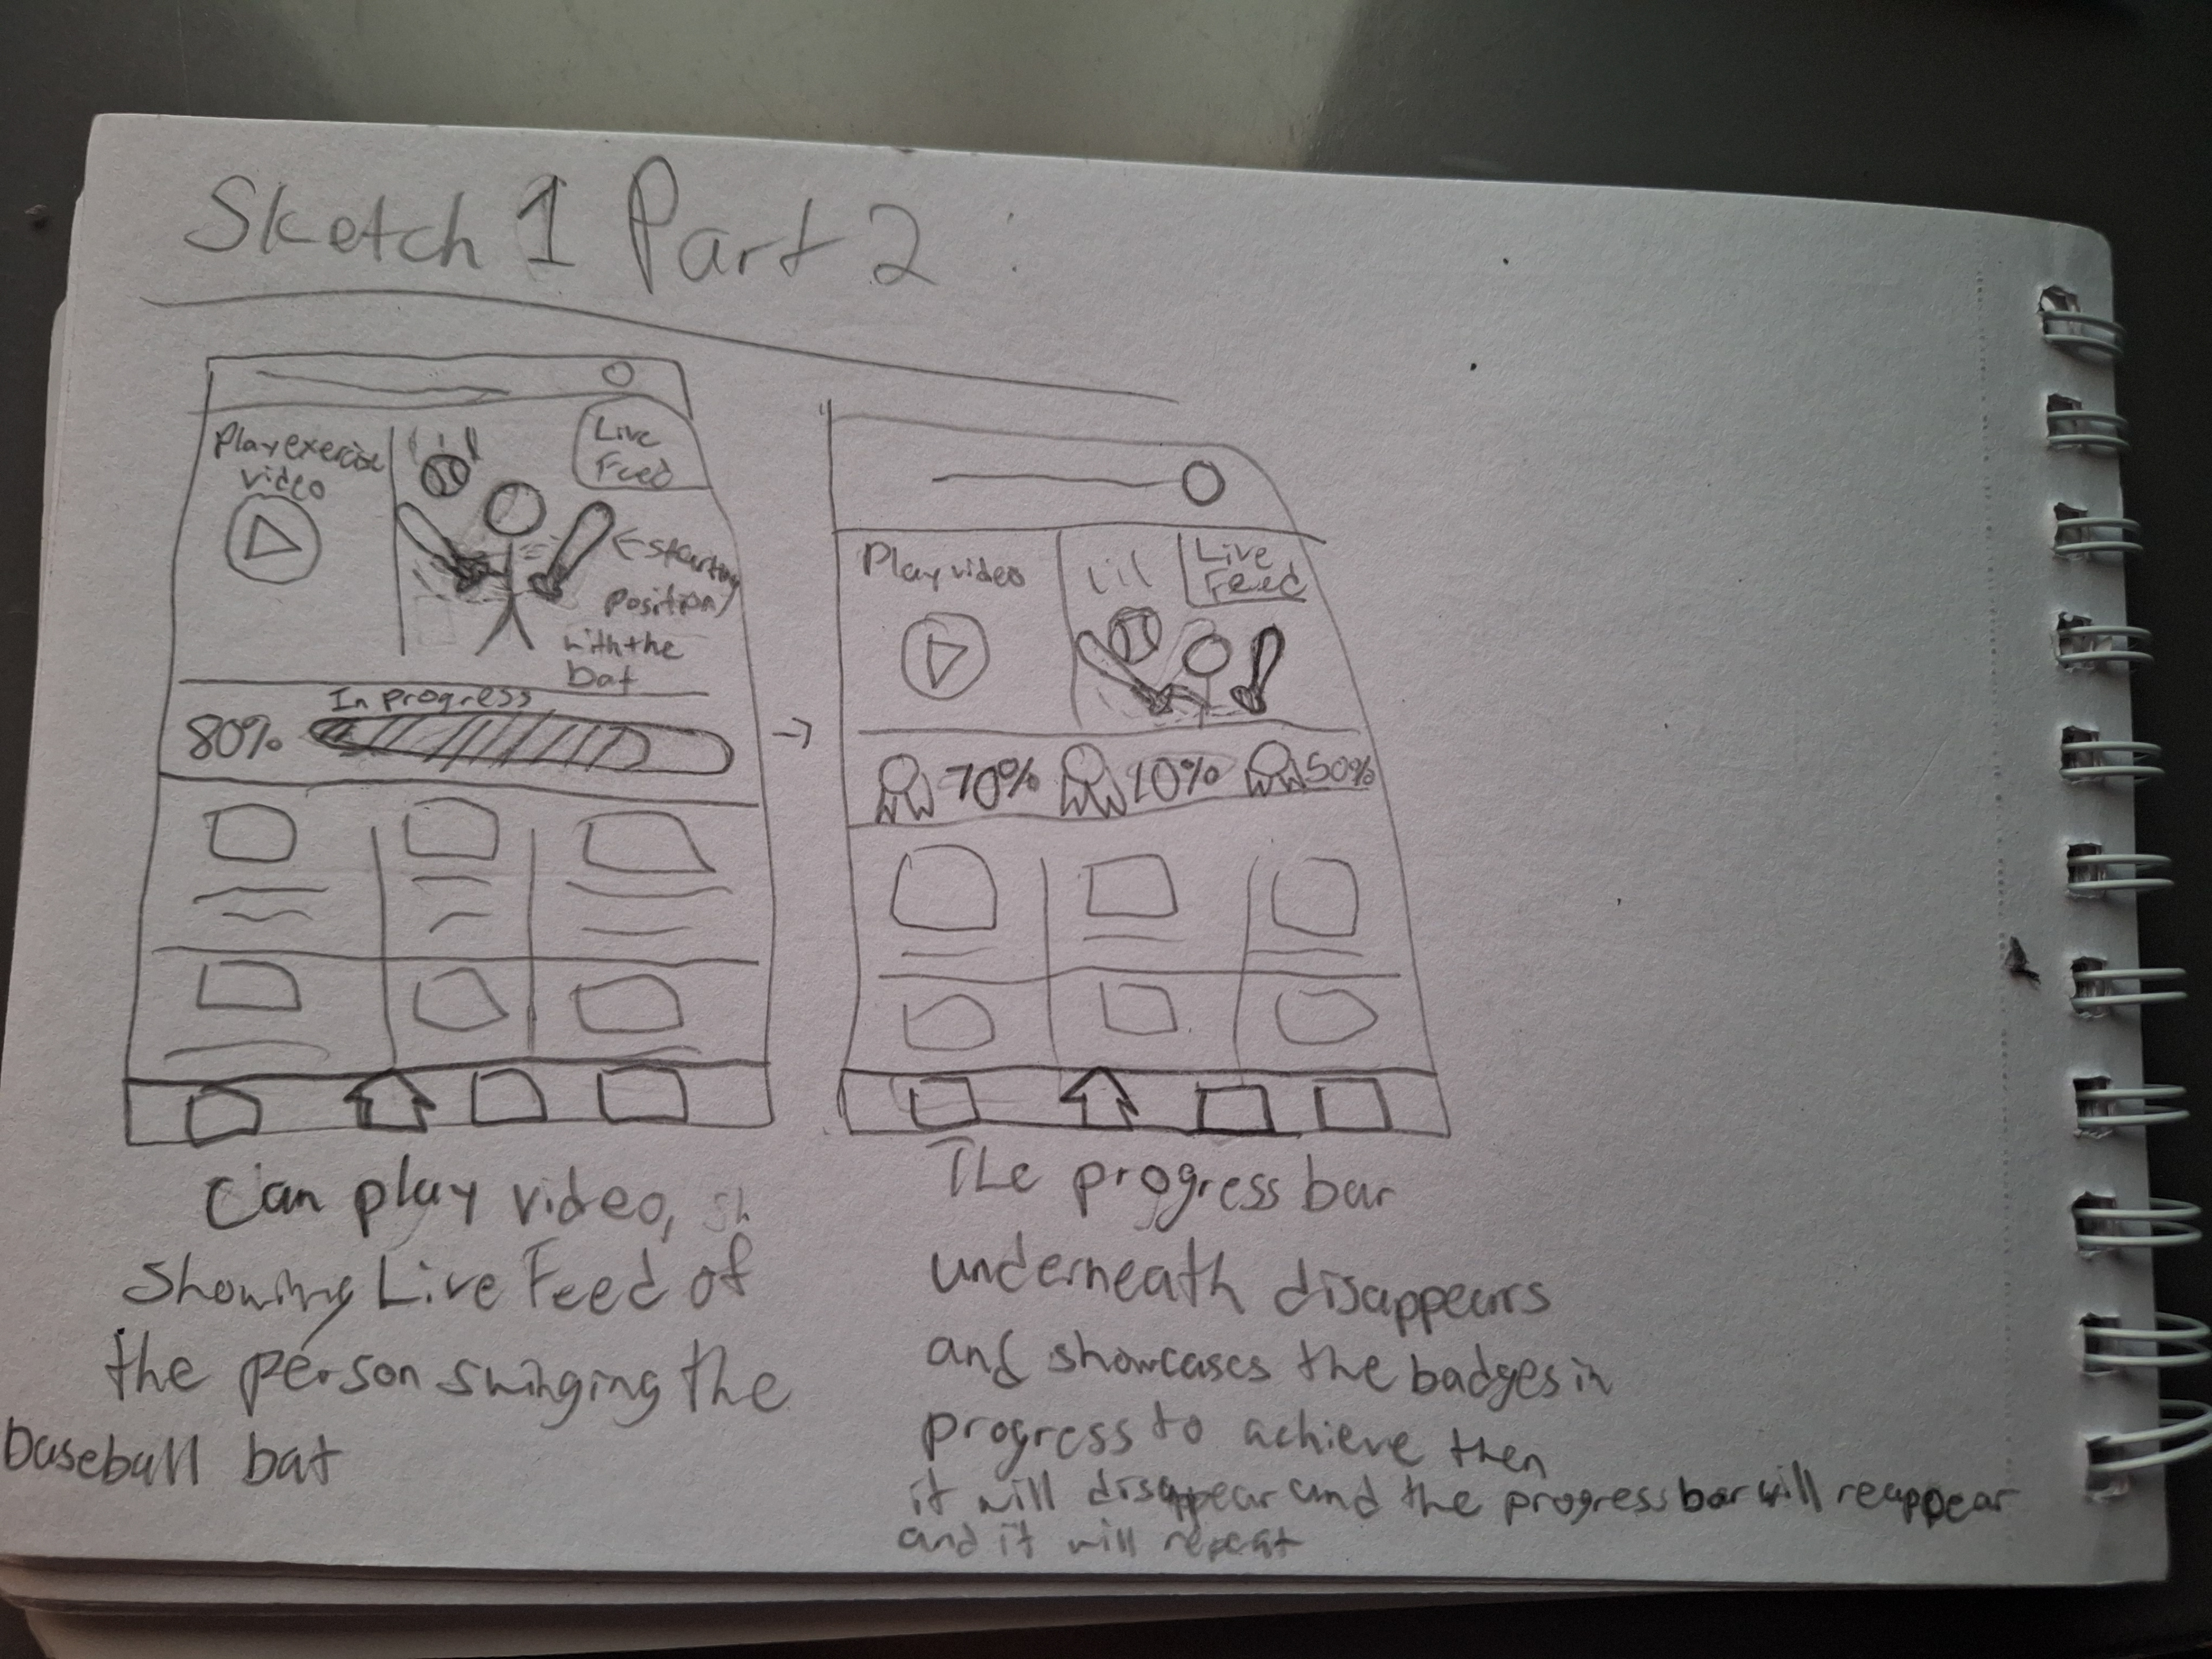 Sketch 1 Part 2 :
Play exercise
video
Live
Feed
← starting
position
with the
bat
In progress
80%
→
Can play video, sh
showing Live Feed of
the person swinging the
baseball bat
Play video
Live
Feed
70% 10% 50%
The progress bar
underneath disappears
and showcases the badges in
progress to achieve then
it will disappear and the progress bar will reappear
and it will repeat